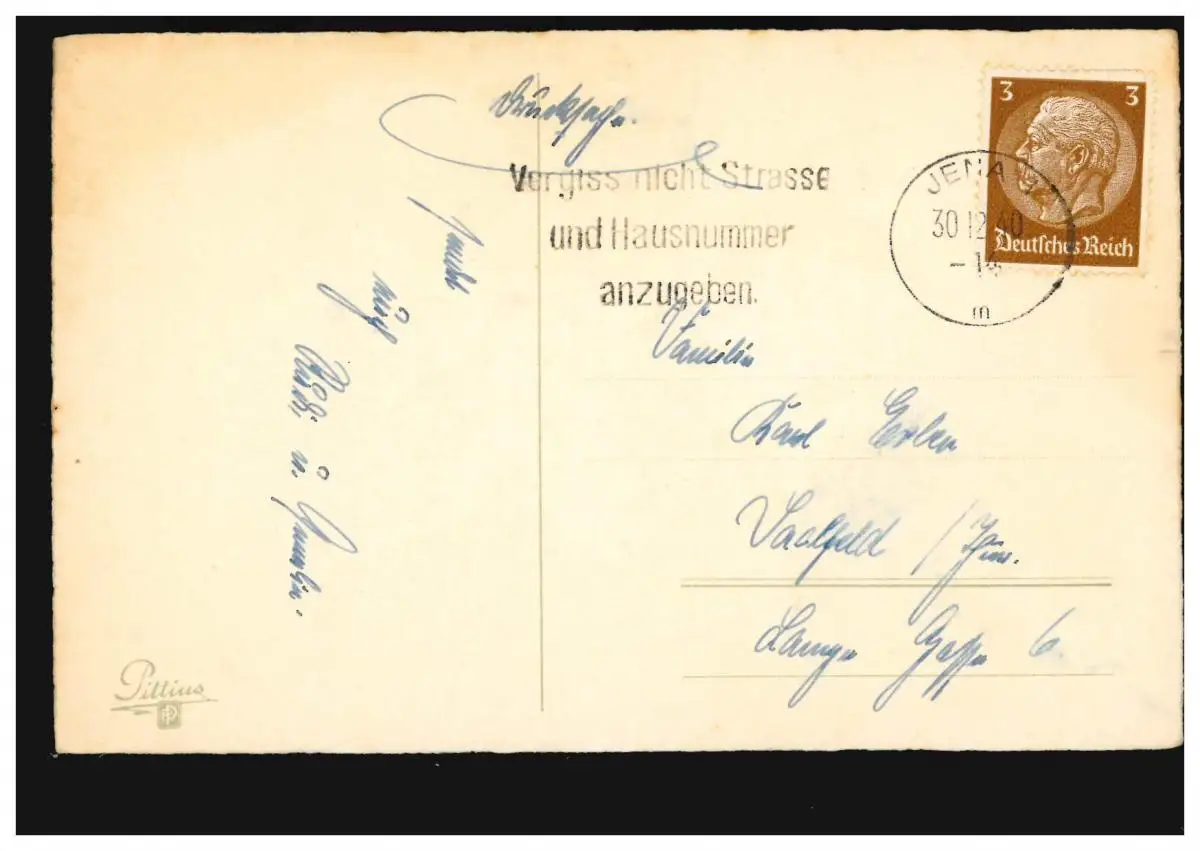 Drucksache.
Vergiss nicht Strasse
und Hausnummer
anzugeben.
3 3
Deutsches Reich
JENA
30.12.40
-14
m
Familie
Karl
Saalfeld / Thür.
Lange Gasse 6.
u.
Pittius